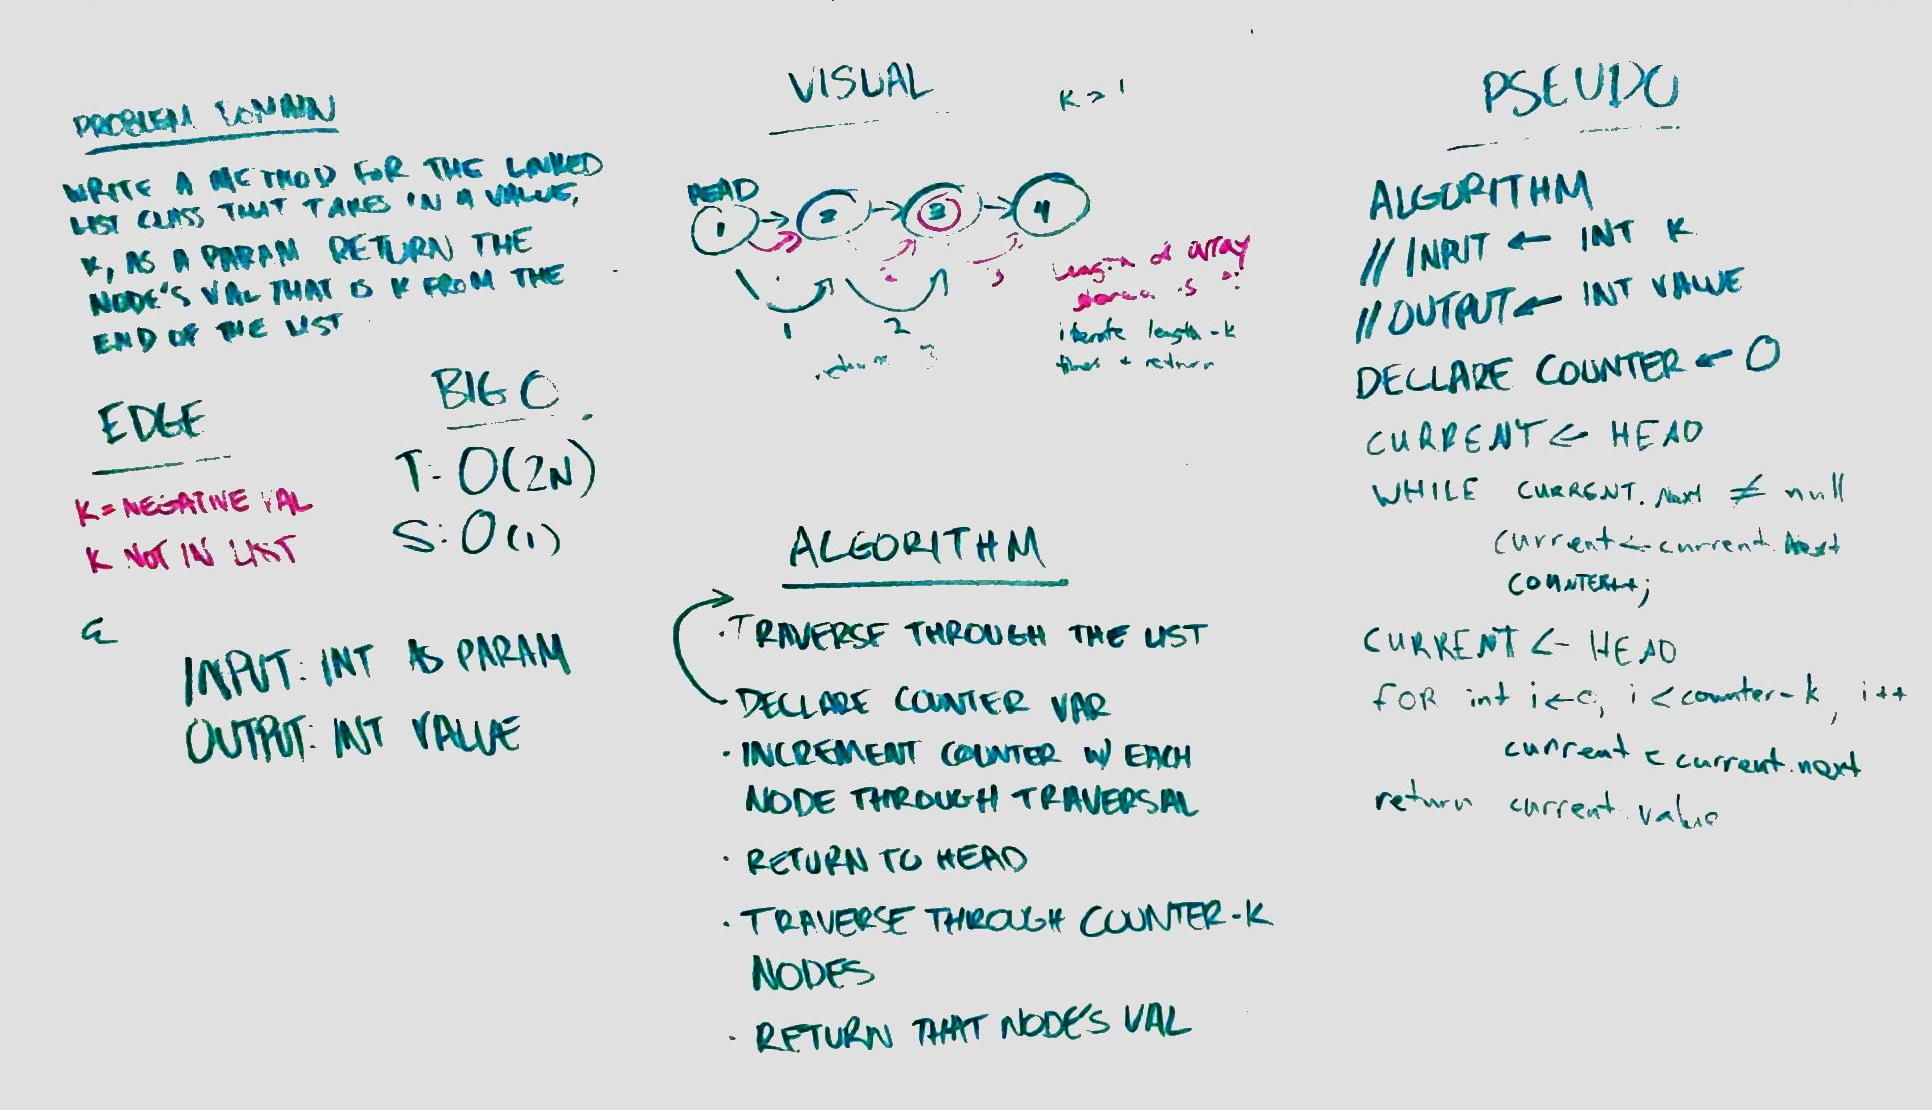 PROBLEM DOMAIN
WRITE A METHOD FOR THE LINKED
LIST CLASS THAT TAKES IN A VALUE,
K, AS A PARAM RETURN THE
NODE'S VAL THAT IS K FROM THE
END OF THE LIST
EDGE
K = NEGATIVE VAL
K NOT IN LIST
BIG O
T: O(2N)
S: O(1)
INPUT: INT AS PARAM
OUTPUT: INT VALUE
VISUAL
K > 1
HEAD
1 → 2 → 3 → 4
3
1 2
return 3
length of array
iterate length - k
times + return
ALGORITHM
· TRAVERSE THROUGH THE LIST
DECLARE COUNTER VAR
· INCREMENT COUNTER W/ EACH
NODE THROUGH TRAVERSAL
· RETURN TO HEAD
· TRAVERSE THROUGH COUNTER-K
NODES
· RETURN THAT NODE'S VAL
PSEUDO
ALGORITHM
// INPUT ← INT K
// OUTPUT ← INT VALUE
DECLARE COUNTER ← 0
CURRENT ← HEAD
WHILE CURRENT. Next ≠ null
current ← current.Next
COUNTER++;
CURRENT ← HEAD
FOR int i ← 0, i < counter - k, i++
current ← current.next
return current.value